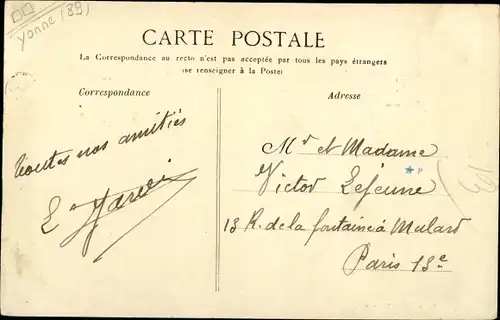 Yonne (89)
CARTE POSTALE
La Correspondance au recto n'est pas acceptée par tous les pays étrangers
(se renseigner à la Poste)
Correspondance
Adresse
toutes nos amitiés
Mr et Madame
Victor Lejeune
13 R. de la fontaine à Mulard
Paris 13e